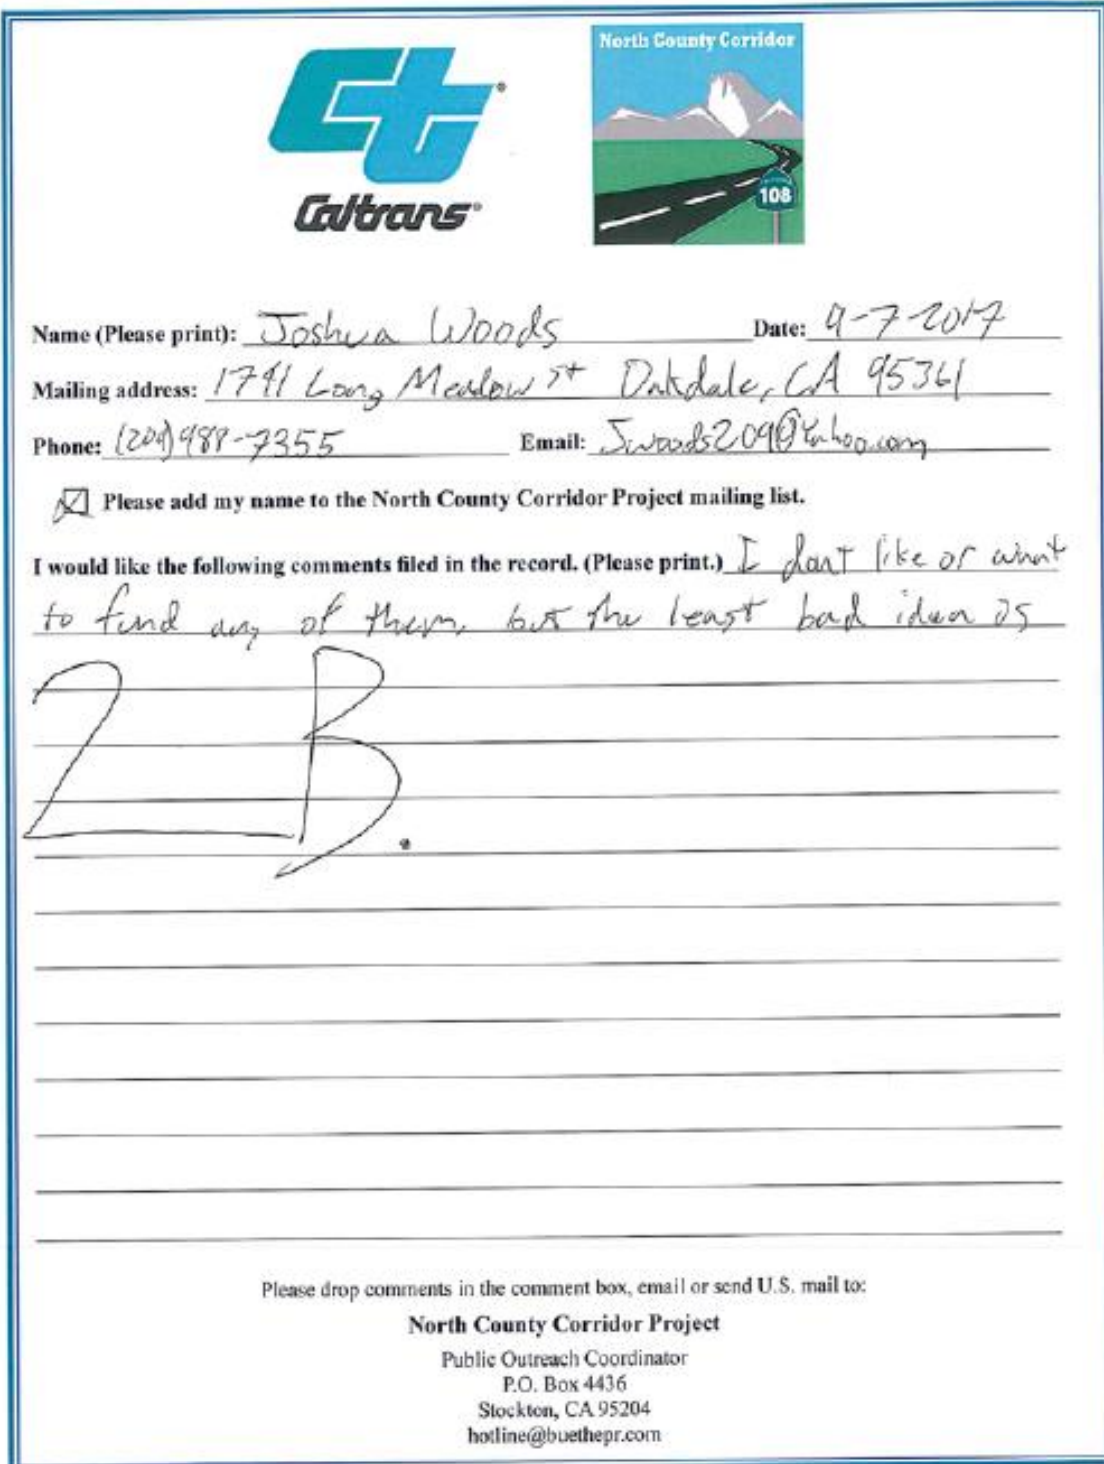 North County Corridor
Ct
Caltrans
108
Name (Please print): Joshua Woods Date: 9-7-2017
Mailing address: 1741 Long Meadow st Oakdale, CA 95361
Phone: (209) 988-7355 Email: Jwoods209@Yahoo.com
Please add my name to the North County Corridor Project mailing list.
I would like the following comments filed in the record. (Please print.) I dont like or whant
to fund any of them, but the least bad idea is
2B.
Please drop comments in the comment box, email or send U.S. mail to:
North County Corridor Project
Public Outreach Coordinator
P.O. Box 4436
Stockton, CA 95204
hotline@buethepr.com